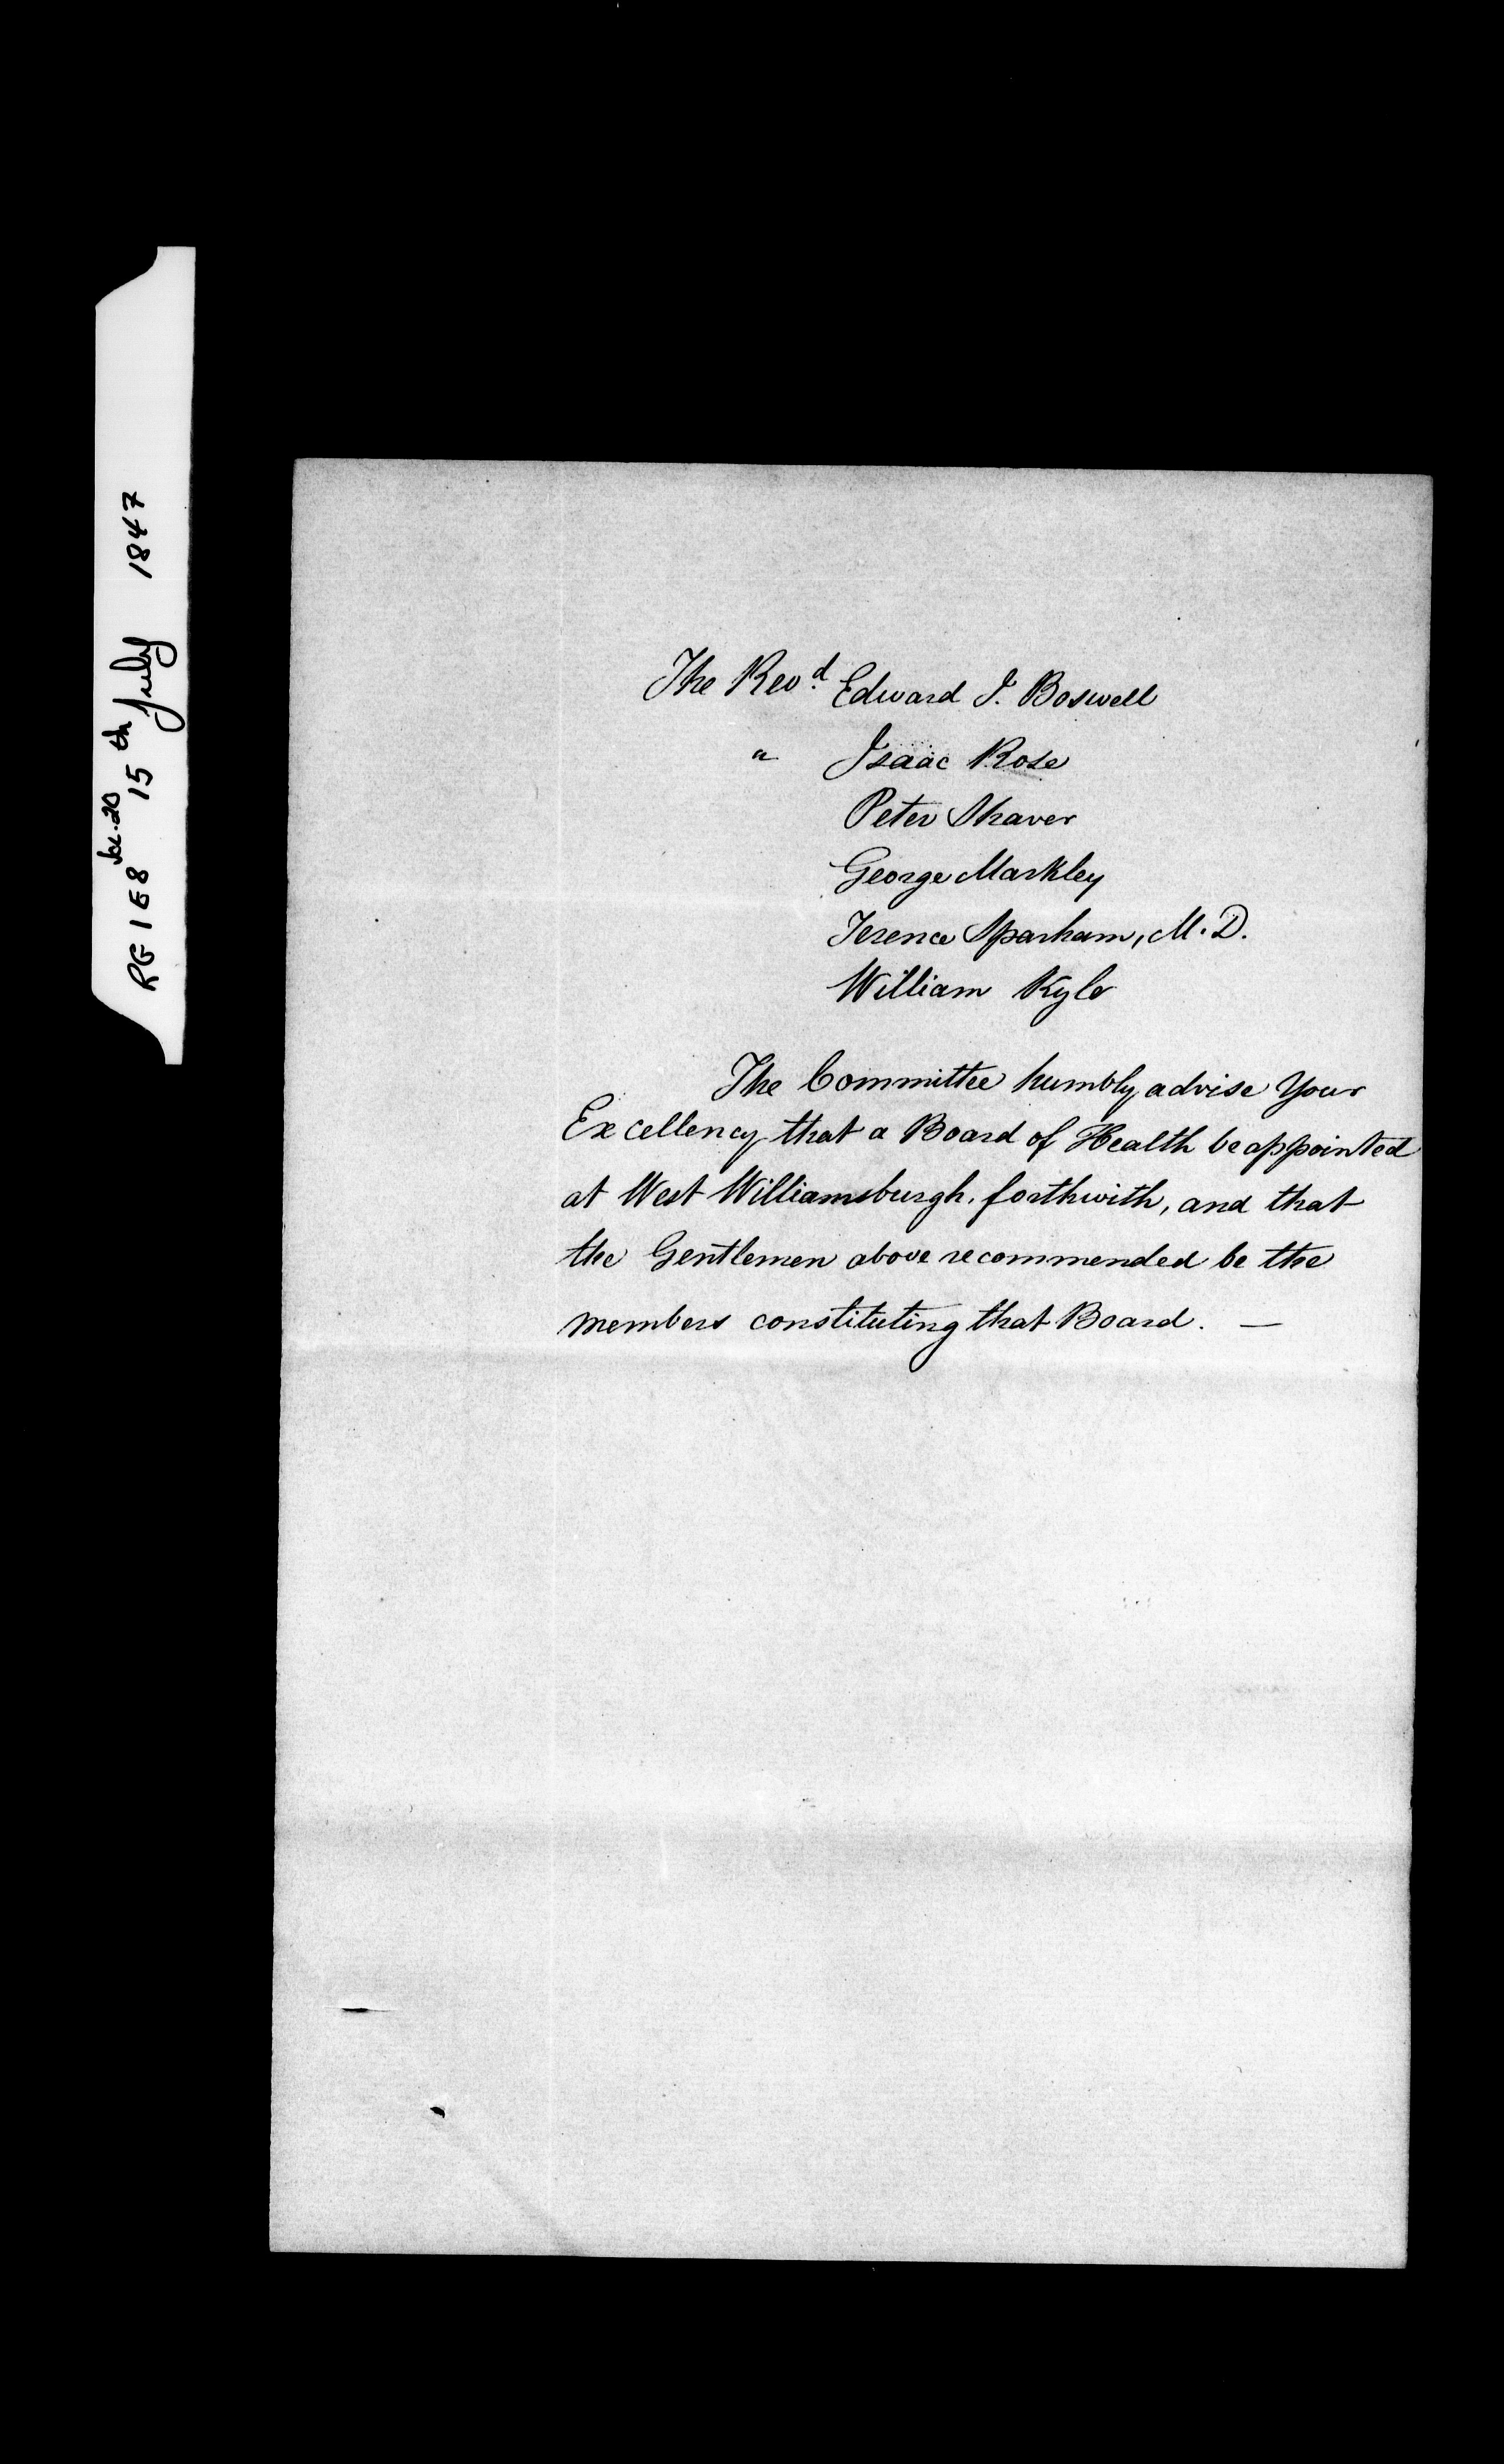 RG 1 E8 Vol. 20 15th July 1847
The Revd. Edward J. Boswell
" Isaac Rose
Peter Shaver
George Markley
Terence Sparham, M.D.
William Kyle
The Committee humbly advise Your
Excellency that a Board of Health be appointed
at West Williamsburgh, forthwith, and that
the Gentlemen above recommended be the
members constituting that Board. —